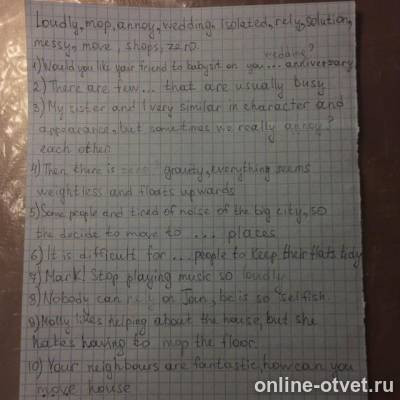 Loudly, mop, annoy, wedding, isolated, rely, solution,
messy, move, shops, zero.
wedding?
1) Would you like your friend to babysit on you ... anniversary
2) There are few ... that are usually busy
3) My sister and I very similar in character and
appearance, but sometimes we really annoy?
each other
4) Then there is zero? gravity, everything seems
weightless and floats upwards
5) Some people and tined of noise of the big city, so
the decide to move to ... places
6) It is difficult for ... people to keep their flats tidy
7) Mark! Stop playing music so loudly
8) Nobody can rely on Joun, be is so selfish.
9) Molly likes helping about the house, but she
hates having to mop the floor.
10) Your neighbours are fantastic, how can you
move house
online-otvet.ru